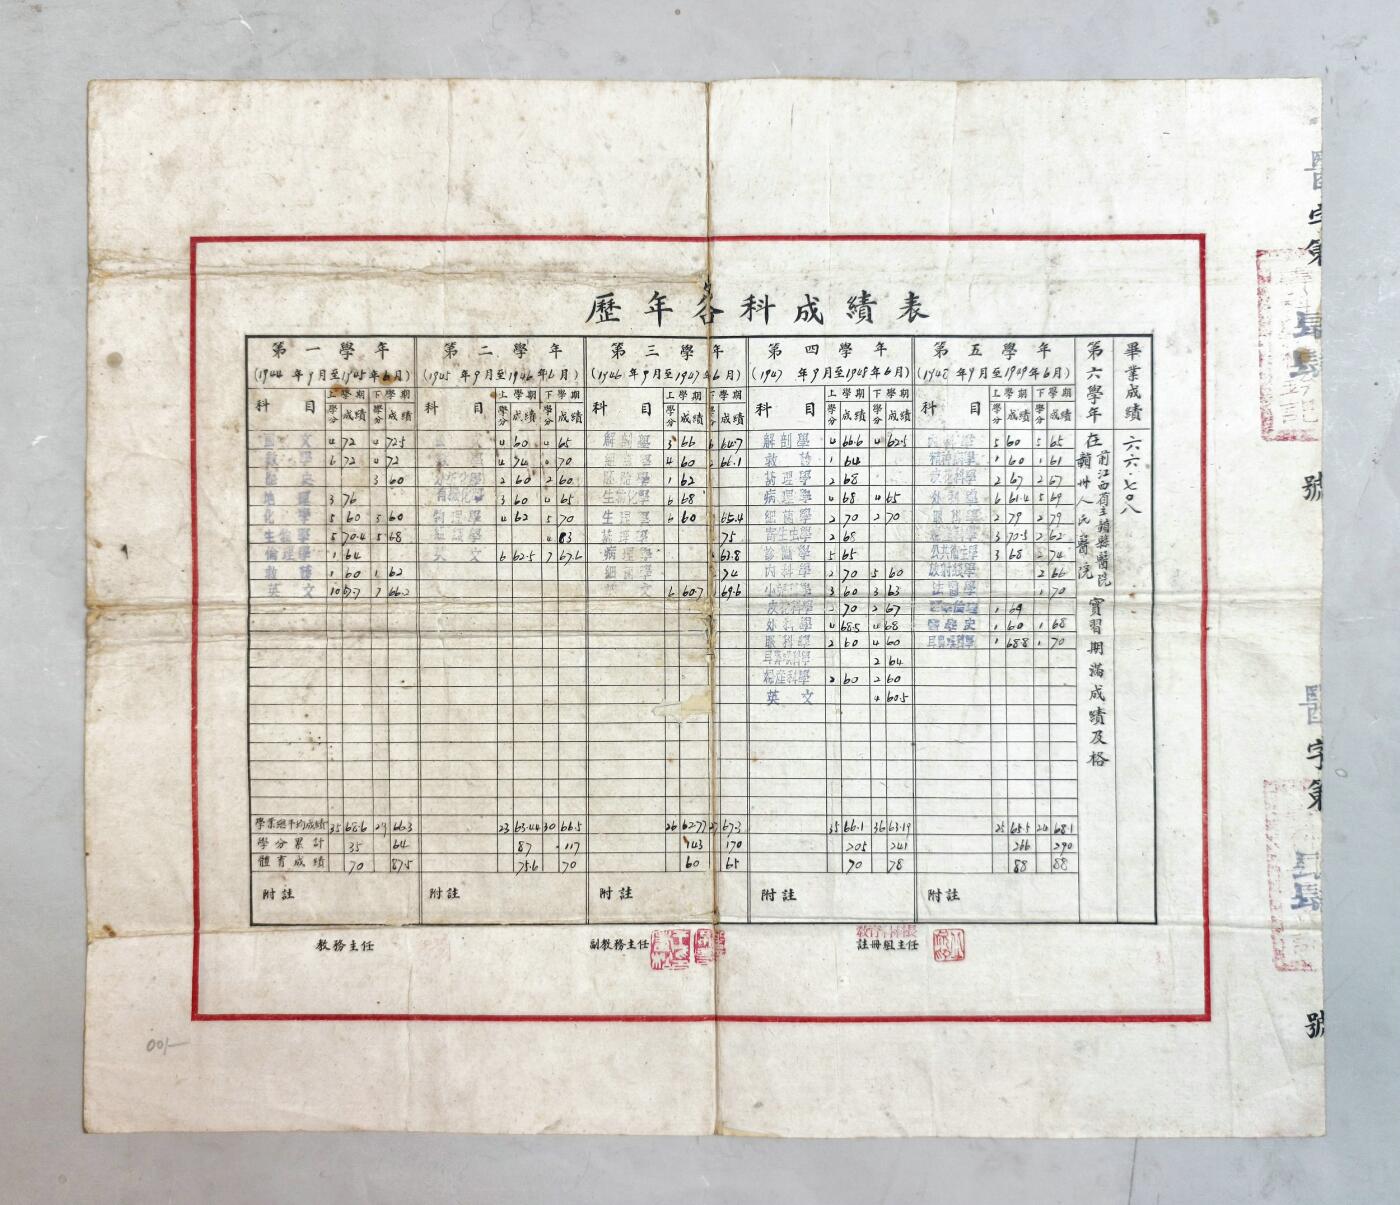 歷年各科成績表
第一學年
(1944年9月至1945年6月)
科目 上學期 下學期
學分 成績 學分 成績
國文 4 72 4 72.5
數學 6 72 4 72
史 3 60
地理 3 76
化學 5 60 5 60
生物學 5 70.4 5 68
倫理學 1 64
救護 1 60 1 62
英文 10 67.7 7 66.2
學業總平均成績 35 68.6 29 66.3
學分累計 35 64
體育成績 70 87.5
附註
第二學年
(1945年9月至1946年6月)
科目 上學期 下學期
學分 成績 學分 成績
4 60 4 65
4 74 4 70
2 60 2 60
有機化學 3 60 4 65
物理學 4 62 5 70
4 83
英文 6 62.5 7 67.6
23 63.44 30 66.5
87 117
75.61 70
附註
第三學年
(1946年9月至1947年6月)
科目 上學期 下學期
學分 成績 學分 成績
解剖學 3 66 64.7
4 60 66.1
胚胎學 1 62
生物化學 6 68
生理學 6 60 65.4
藥理學 75
病理學 63.8
細菌學 74
英文 6 60.7 69.6
26 62.77 27 67.3
143 170
60 65
附註
第四學年
(1947年9月至1948年6月)
科目 上學期 下學期
學分 成績 學分 成績
解剖學 4 66.6 4 62.5
救護 1 64
藥理學 2 68
病理學 4 68 4 65
細菌學 2 70 2 70
寄生虫學 2 68
診斷學 5 65
內科學 2 70 5 60
小兒科學 3 60 3 63
皮花科學 2 70 2 67
外科學 4 68.5 4 68
眼科學 2 60 4 60
耳鼻喉科學 2 64
婦產科學 2 60 2 60
英文 4 60.5
35 66.1 36 63.19
205 241
70 78
附註
第五學年
(1948年9月至1949年6月)
科目 上學期 下學期
學分 成績 學分 成績
內科學 5 60 5 65
精神病學 1 60 1 61
皮花科學 2 67 2 67
外科學 6 61.4 5 69
眼科學 2 79 2 79
婦產科學 3 70.5 2 62
公共衛生學 3 68 2 74
放射綫學 2 66
法醫學 1 70
醫學倫理 1 64
醫學史 1 60 1 68
耳鼻喉科學 1 68.8 1 70
25 65.5 24 68.1
266 290
88 88
附註
第六學年
在前江西省立贛縣醫院
贛州人民醫院
實習期滿成績及格
畢業成績
六六·七〇八
教務主任
副教務主任
註冊組主任
醫字第
號
醫字第
號
00/—